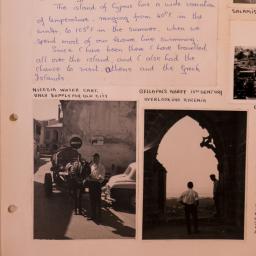 The island of Cyprus has a wide variation
of temperature, ranging from 40°F in the
winter, to 105°F in the summer, when we
spend most of our leisure time swimming.
Since I have been there I have travelled
all over the island, and I also had the
chance to visit Athens and the Greek
Islands
SALAMIS
NICOSIA WATER CART,
ONLY SUPPLY FOR OLD CITY
BELLAPAIS ABBEY
OVERLOOKING KYRENIA